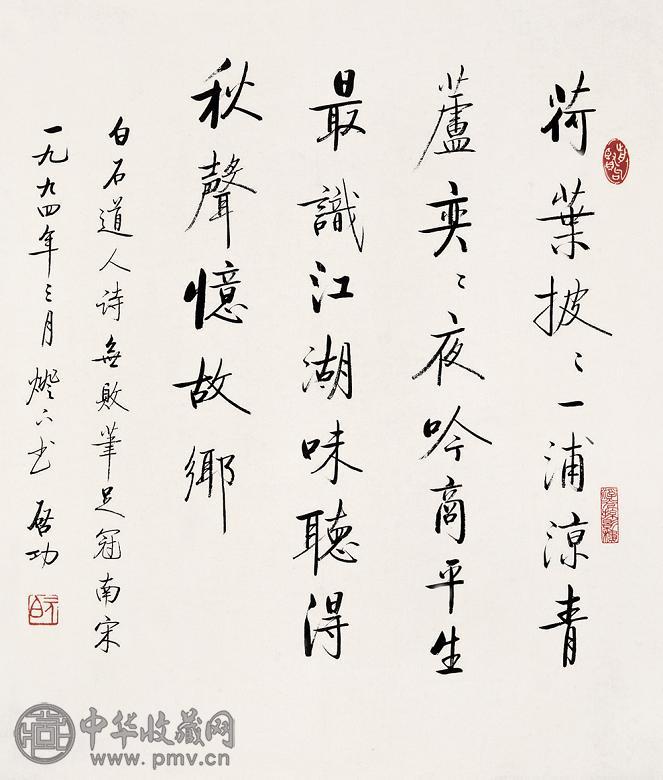 荷葉披〻一浦涼青
蘆奕〻夜吟商平生
最識江湖味聽得
秋聲憶故鄉
白石道人詩無敗筆足冠南宋
一九九四年三月燈下书 啓功
中华收藏网
www.pmv.cn